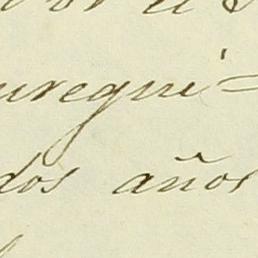 uregui=
dos años